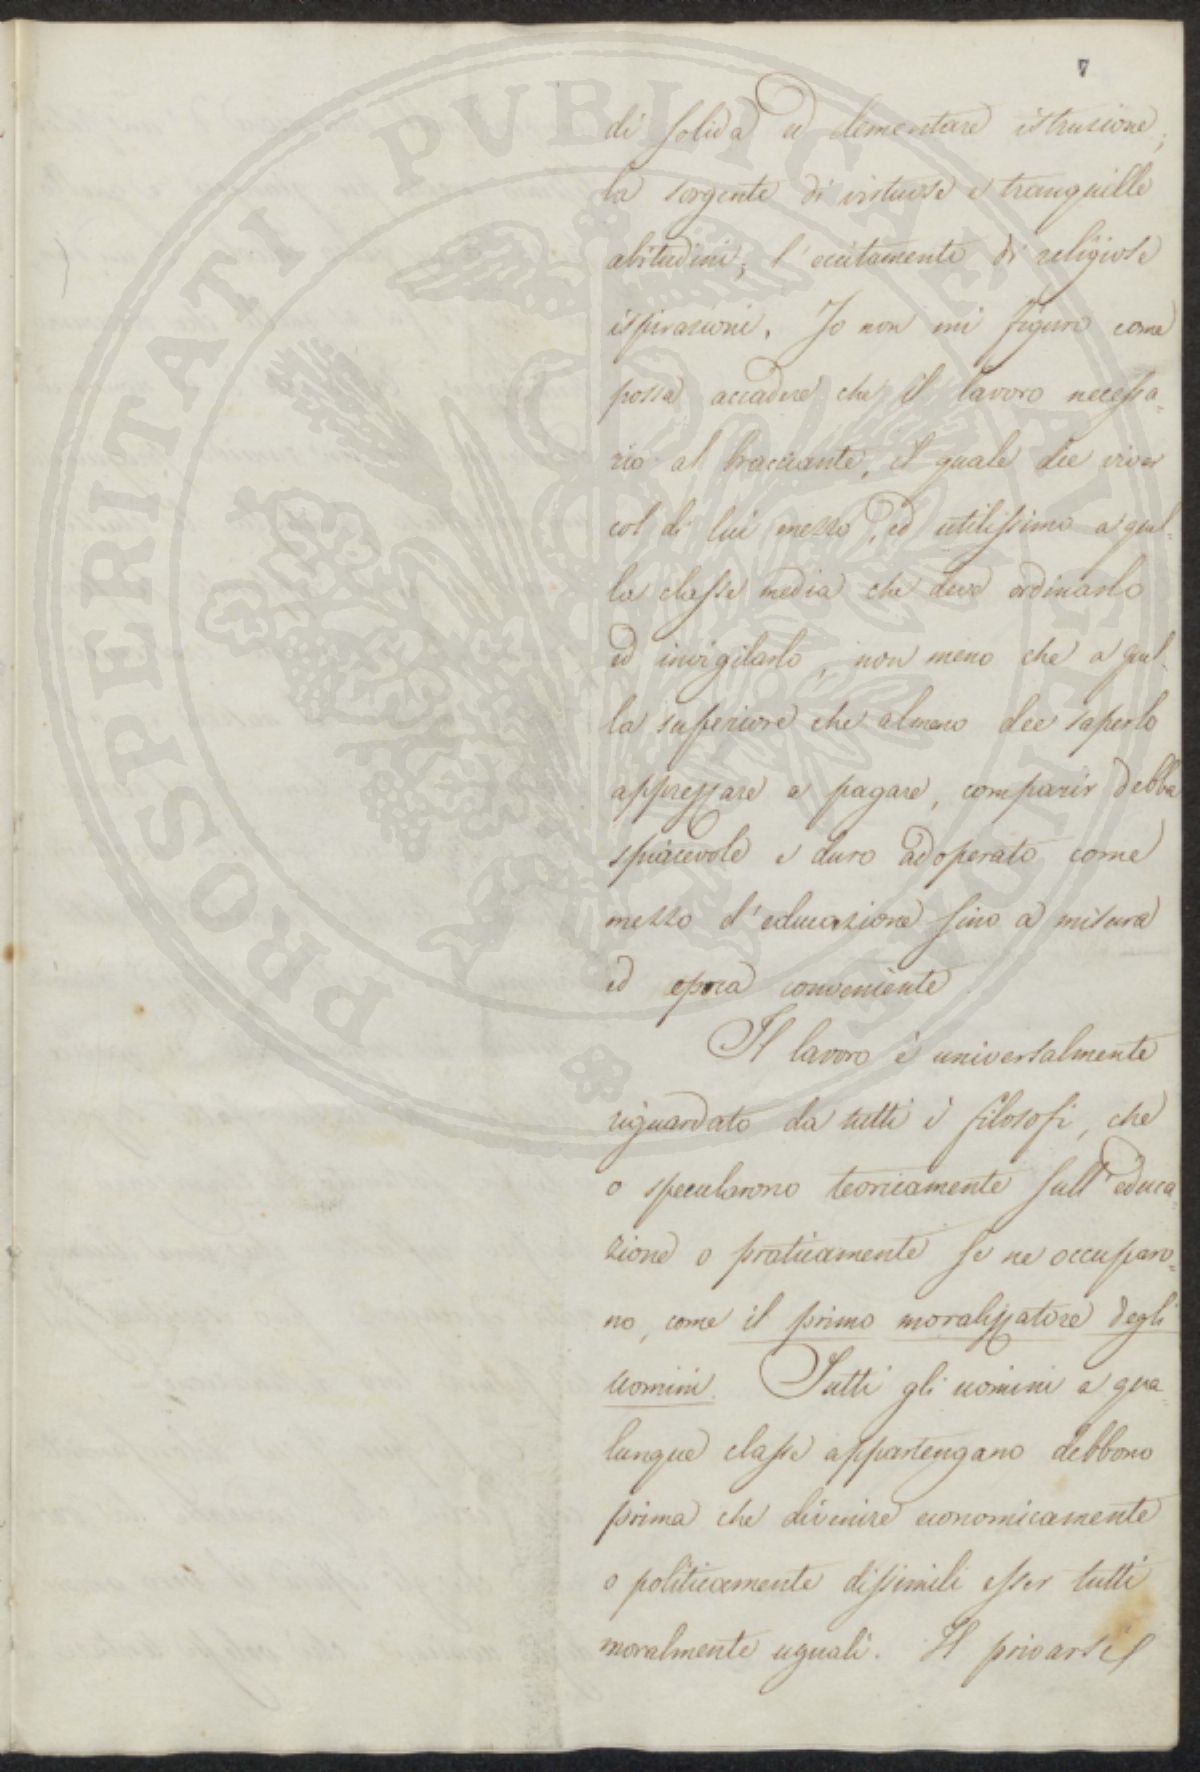 7
PROSPERITATI PUBLICAE AUGENDAE
di solida ed elementare istruzione,
la sorgente di virtuose e tranquille
abitudini, l'eccitamento di religiose
ispirazioni. Io non mi figuro come
possa accadere che il lavoro necessa-
rio al bracciante, il quale dee viver
col di lui mezzo, ed utilissimo a quel-
la classe media che deve ordinarlo
ed invigilarlo, non meno che a quel-
la superiore che almeno dee saperlo
apprezzare e pagare, comparir debba
spiacevole e duro adoperato come
mezzo d'educazione sino a misura
ed epoca conveniente.
Il lavoro è universalmente
riguardato da tutti i filosofi, che
o specularono teoricamente sull'educa-
zione o praticamente se ne occuparo-
no, come il primo moralizzatore degli
uomini. Tutti gli uomini a qua-
lunque classe appartengano debbono
prima che divenire economicamente
o politicamente dissimili esser tutti
moralmente uguali. Il privarsi